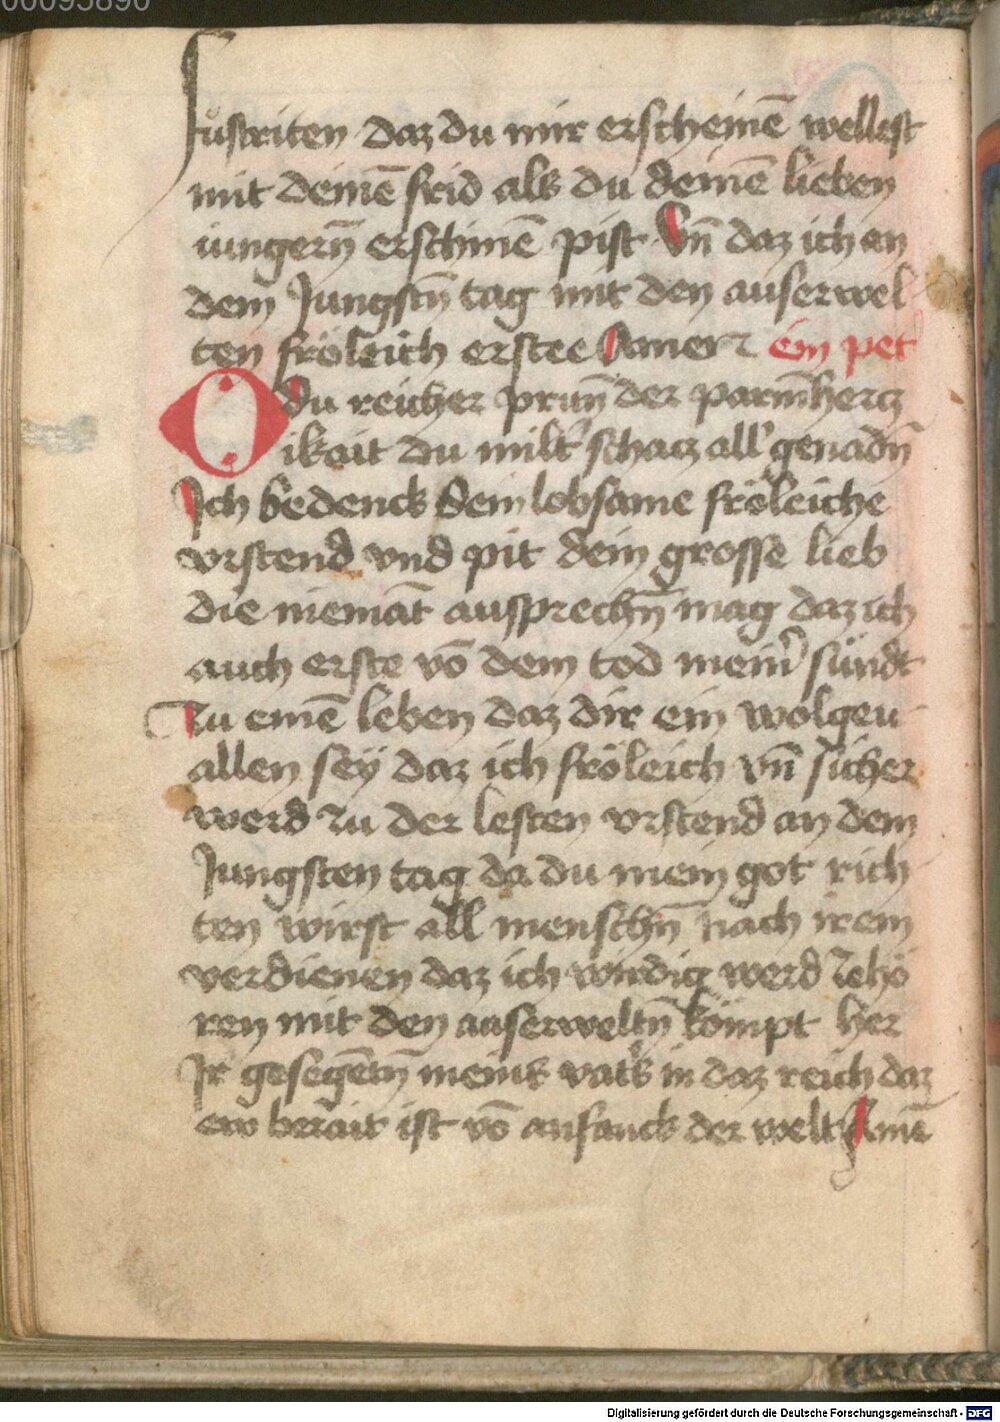 00095890
fuͤstriten daz du mir erscheinē wellest
mit deinē frid als du deinē lieben
iungern̄ erschinē pist Vn̄ daz ich an
dem Jungstn̄ tag mit den auserwel
ten fröleich erstee Amen ein pet
O du reicher prun̄ der parm̄hercz
ikait du milt' schacz all' genadn̄
Ich bedenck dein lobsame fröleiche
vrstend vnd pit dein grosse lieb
die niemāt ausprechn̄ mag daz ich
auch erste vō dem tod mein' sündt
Zu einē leben daz dir ein wolgeu
allen sey daz ich fröleich vn̄ sicher
werd zu der lesten vrstend an dem
Jungsten tag da du mein got rich
ten wirst all menschn̄ nach irem
verdienen daz ich wirdig werd zehö
ren mit den auserweltn̄ kömpt her
Ir gesegētn̄ meins vat's in daz reich daz
ew berait ist vō anfanck der welt Amē
Digitalisierung gefördert durch die Deutsche Forschungsgemeinschaft - DFG